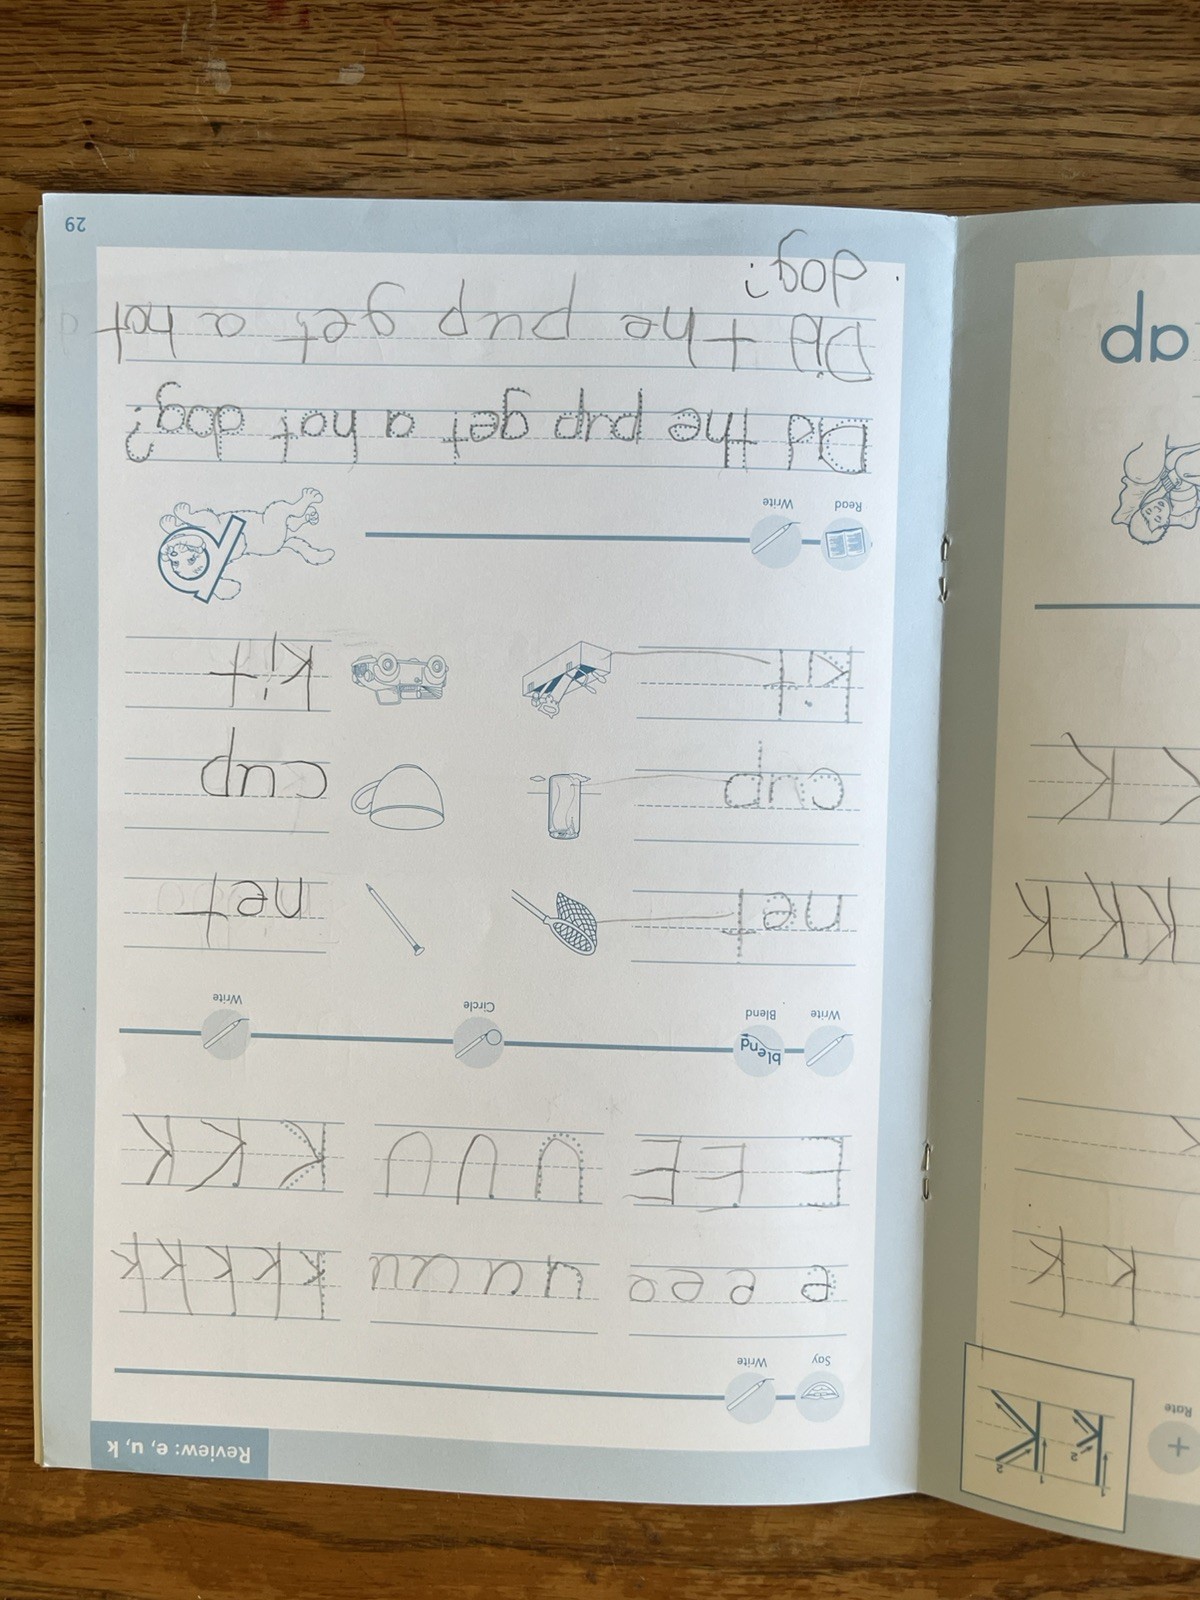 Review: e, u, k
Say
Write
e e e e
u u u u u
k k k k k
E E E
U U U
K K K
Write
blend
Blend
Circle
Write
net
net
cup
cup
kit
kit
Read
Write
Did the pup get a hot dog?
Did the pup get a hot
dog?
29
+
Rate
1
2
1
2
K k
k k
K K K
K K
ap